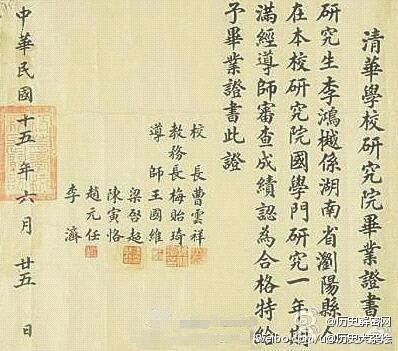 清華學校研究院畢業證書
研究生李鴻樾係湖南省瀏陽縣人
在本校研究院國學門研究一年期
滿經導師審查成績認為合格特給
予畢業證書此證
校長曹雲祥
教務長梅貽琦
導師王國維
梁啟超
陳寅恪
趙元任
李濟
中華民國十五年六月廿五日
@历史解密网